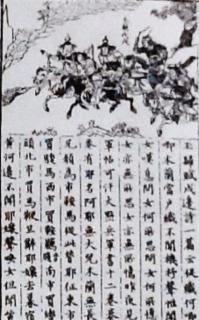 歸賦戍邊詩一篇云促織何
唧木蘭當戶織不聞機杼聲惟聞
女嘆息問女何所思問女何所憶
女亦無所思女亦無所憶昨夜見
軍帖可汗大點兵軍書十二卷卷
卷有耶名阿耶無大兒木蘭無長
兄願為市鞍馬從此替耶征東市
買駿馬西市買鞍韉南市買轡
頭北市買馬鞭旦辭耶孃去暮宿
黃河邊不聞耶孃聲喚女但聞